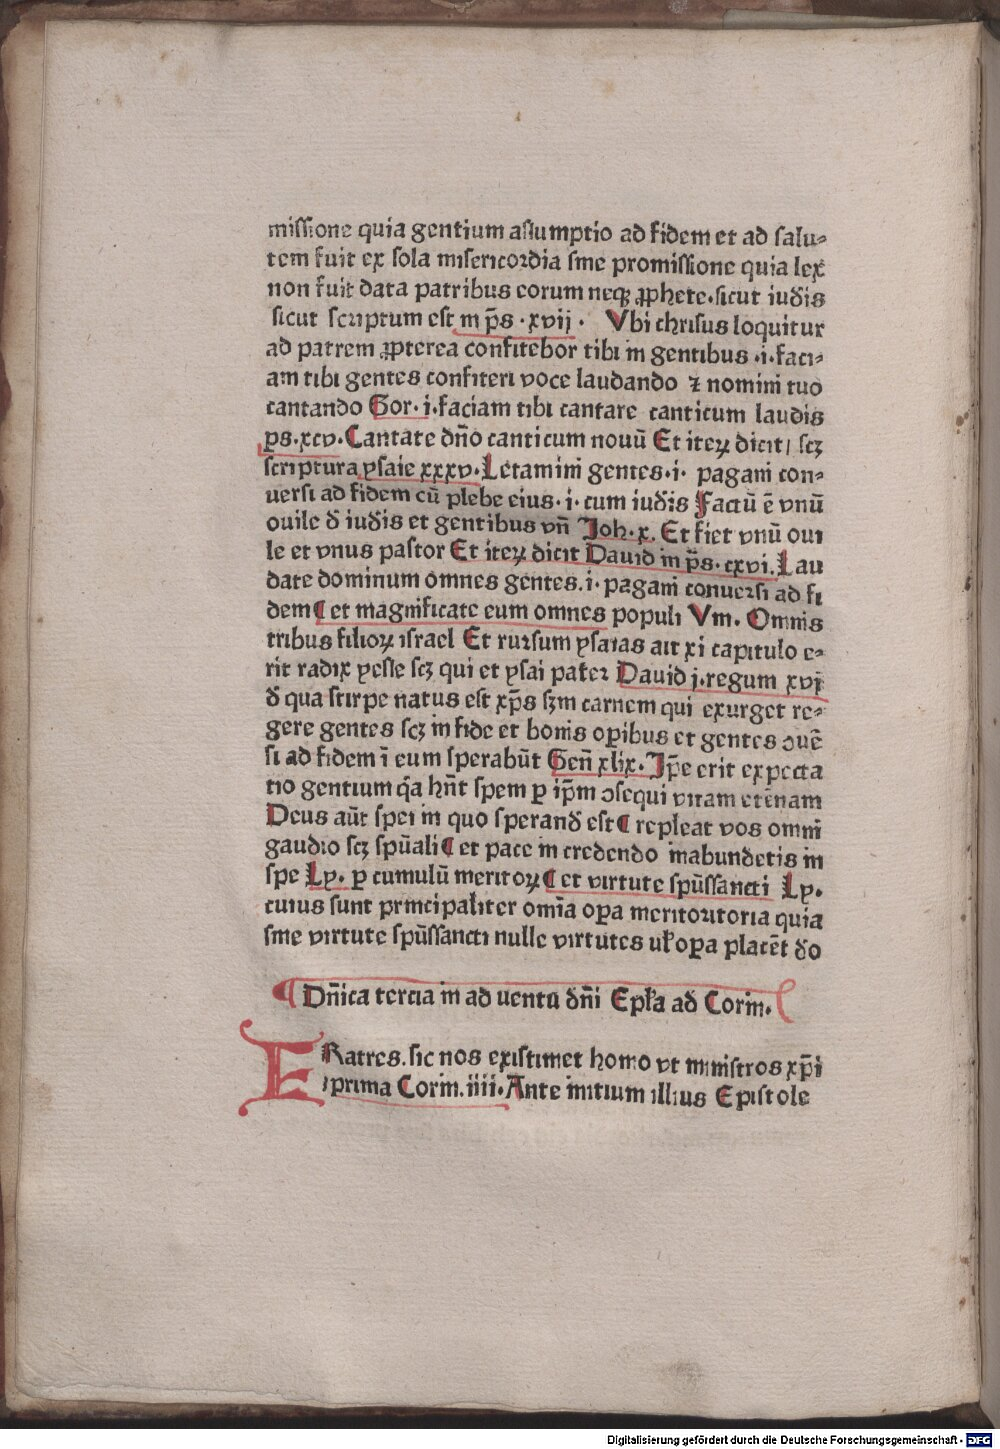 missione quia gentium assumptio ad fidem et ad salu⸗
tem fuit ex sola misericordia sine promissione quia lex
non fuit data patribus eorum neqꝫ ꝓphete.sicut iudis
sicut scriptum est in p̄s.xvij. Vbi chrisus loquitur
ad patrem ꝓpterea confitebor tibi in gentibus .i.faci⸗
am tibi gentes confiteri voce laudando ⁊ nomini tuo
cantando Gor.i.faciam tibi cantare canticum laudis
ps.xcv.Cantate dn̄o canticum nouū Et iteꝝ dicit/ scꝫ
scriptura ysaie xxxv.Letamini gentes.i. pagani con⸗
uersi ad fidem cū plebe eius.i.cum iudis Factū ē vnū
ouile d̄ iudis et gentibus vn̄ Joh.x.Et fiet vnū oui
le et vnus pastor Et iteꝝ dicit Dauid in p̄s.cxvi.Lau
date dominum omnes gentes.i.pagani conuersi ad fi
dem et magnificate eum omnes populi Vm. Omnis
tribus filioꝝ israel Et rursum ysaias ait xi capitulo e⸗
rit radix yesse scꝫ qui et ysai pater Dauid j.regum xvi
d̄ qua stirpe natus est xp̄s sꝫm carnem qui exurget re⸗
gere gentes scꝫ in fide et bonis oꝑibus et gentes ꝯuē
si ad fidem ī eum sperabūt Gen̄ xlix.Jp̄e erit expecta
tio gentium q̄a hn̄t spem ꝑ ip̄m ꝯsequi vitam etēnam
Deus aūt spei in quo sperand̄ est repleat vos omni
gaudio scꝫ spūali et pace in credendo inabundetis in
spe Ly. ꝑ cumulū meritoꝝ et virtute spūssancti Ly.
cuius sunt principaliter omīa oꝑa meritoritoria quia
sine virtute spūssancti nulle virtutes uł oꝑa placēt do
Dn̄ica tercia in ad uentu dn̄i Epła ad Corin.
FRatres.sic nos existimet homo vt ministros xp̄i
prima Corin.iiii.Ante initium illius Epistole
Digitalisierung gefördert durch die Deutsche Forschungsgemeinschaft - DFG